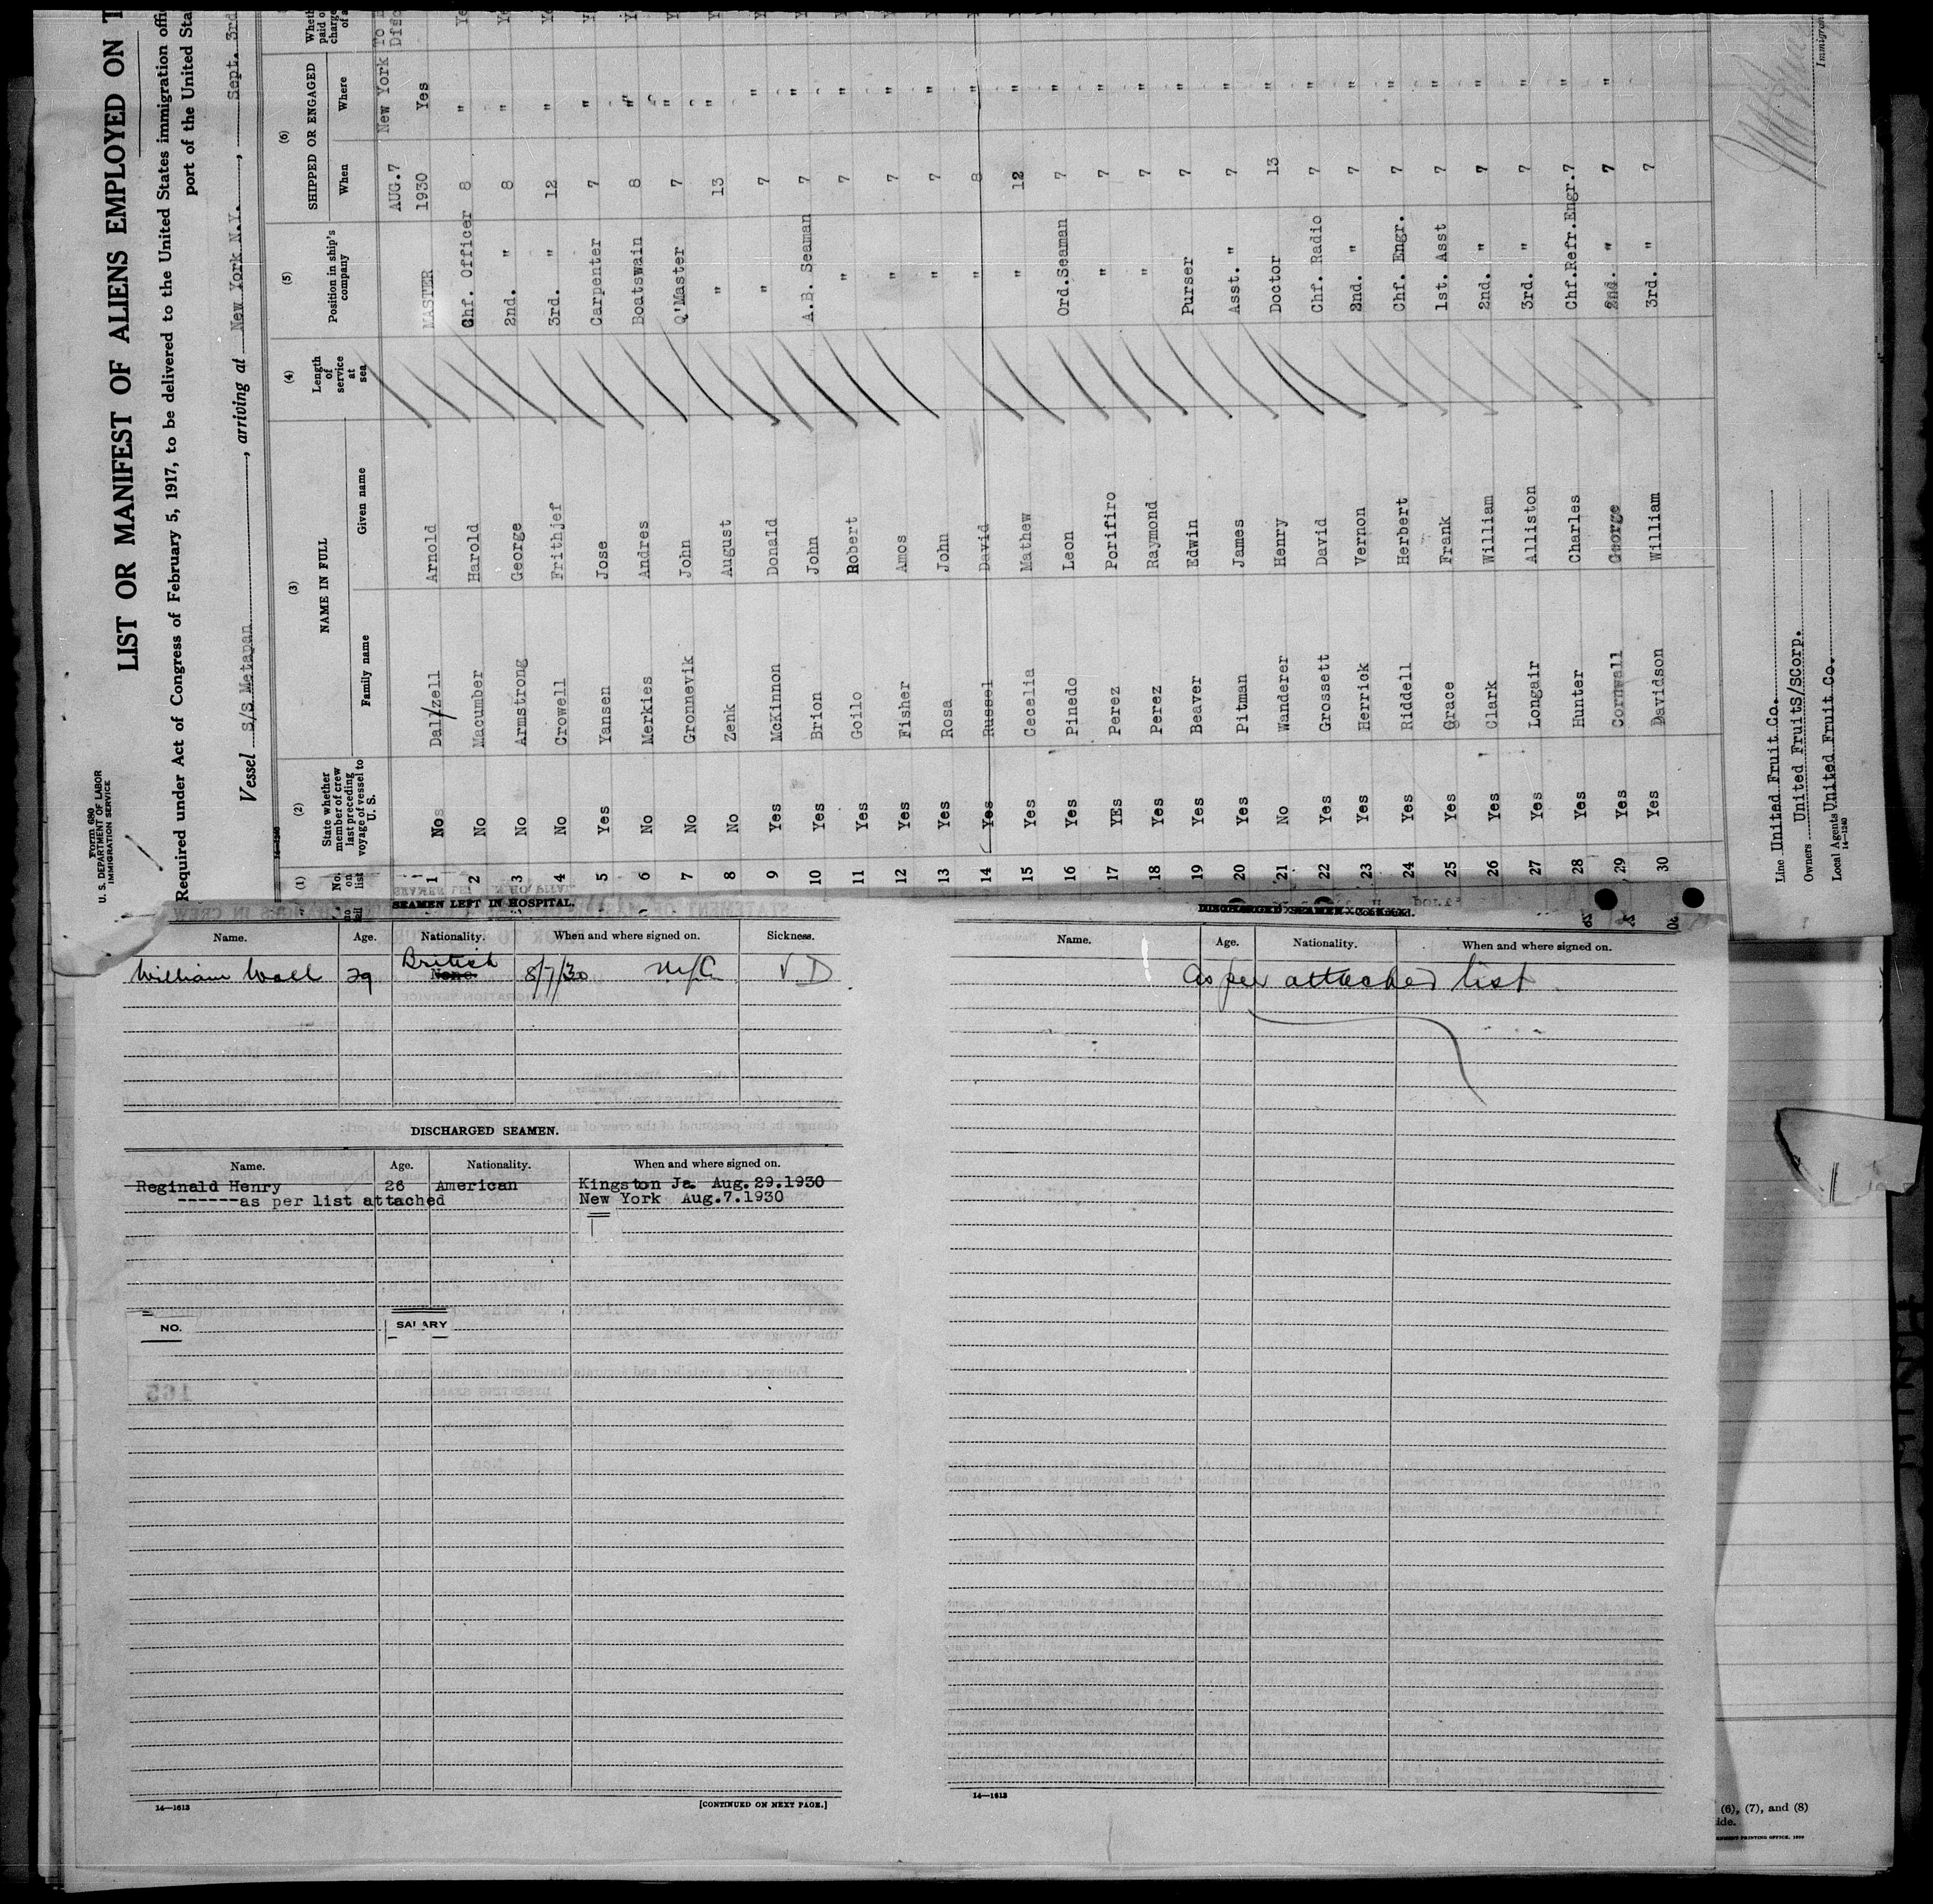 Form 680
U. S. DEPARTMENT OF LABOR
IMMIGRATION SERVICE
LIST OR MANIFEST OF ALIENS EMPLOYED ON T
Required under Act of Congress of February 5, 1917, to be delivered to the United States immigration offi
port of the United Sta
Vessel S/S Metapan, arriving at New York N.Y., Sept. 3rd
(1) (2) (3) (4) (5) (6)
No. on list
State whether member of crew last preceding voyage of vessel to U. S.
NAME IN FULL
Family name Given name
Length of service at sea
Position in ship's company
SHIPPED OR ENGAGED
When Where
AUG.7 New York To
1 No Dalzell Arnold MASTER 1930 Yes
2 No Macumber Harold Chf. Officer 8 "
3 No Armstrong George 2nd. " 8 "
4 No Crowell Frithjef 3rd. " 12 "
5 Yes Yansen Jose Carpenter 7 "
6 No Merkies Andres Boatswain 8 "
7 No Gronnevik John Q'Master 7 "
8 No Zenk August " 13 "
9 Yes McKinnon Donald " 7 "
10 Yes Brion John A.B. Seaman 7 "
11 Yes Goilo Robert " 7 "
12 Yes Fisher Amos " 7 "
13 Yes Rosa John " 7 "
14 Yes Russel David " 8 "
15 Yes Cecelia Mathew " 12 "
16 Yes Pinedo Leon Ord.Seaman 7 "
17 YEs Perez Porifiro " 7 "
18 Yes Perez Raymond " 7 "
19 Yes Beaver Edwin Purser 7 "
20 Yes Pitman James Asst. " 7 "
21 No Wanderer Henry Doctor 13 "
22 Yes Grossett David Chf. Radio 7 "
23 Yes Herrick Vernon 2nd. " 7 "
24 Yes Riddell Herbert Chf. Engr. 7 "
25 Yes Grace Frank 1st. Asst 7 "
26 Yes Clark William 2nd. " 7 "
27 Yes Longair Alliston 3rd. " 7 "
28 Yes Hunter Charles Chf.Refr.Engr. 7 "
29 Yes Cornwall George 2nd. " 7 "
30 Yes Davidson William 3rd. " 7
Line United Fruit Co.
Owners United FruitS/SCorp.
Local Agents United Fruit Co.
14-1240
Immigran
SEAMEN LEFT IN HOSPITAL.
Name. Age. Nationality. When and where signed on. Sickness.
William Wall 29 British 8/7/30 NYC V D
DISCHARGED SEAMEN.
Name. Age. Nationality. When and where signed on.
Reginald Henry 26 American Kingston Ja. Aug.29.1930
------as per list attached New York Aug.7.1930
NO. SALARY
14—1613 [CONTINUED ON NEXT PAGE.]
Name. Age. Nationality. When and where signed on.
As per attached list
14—1613
(6), (7), and (8)
ide.